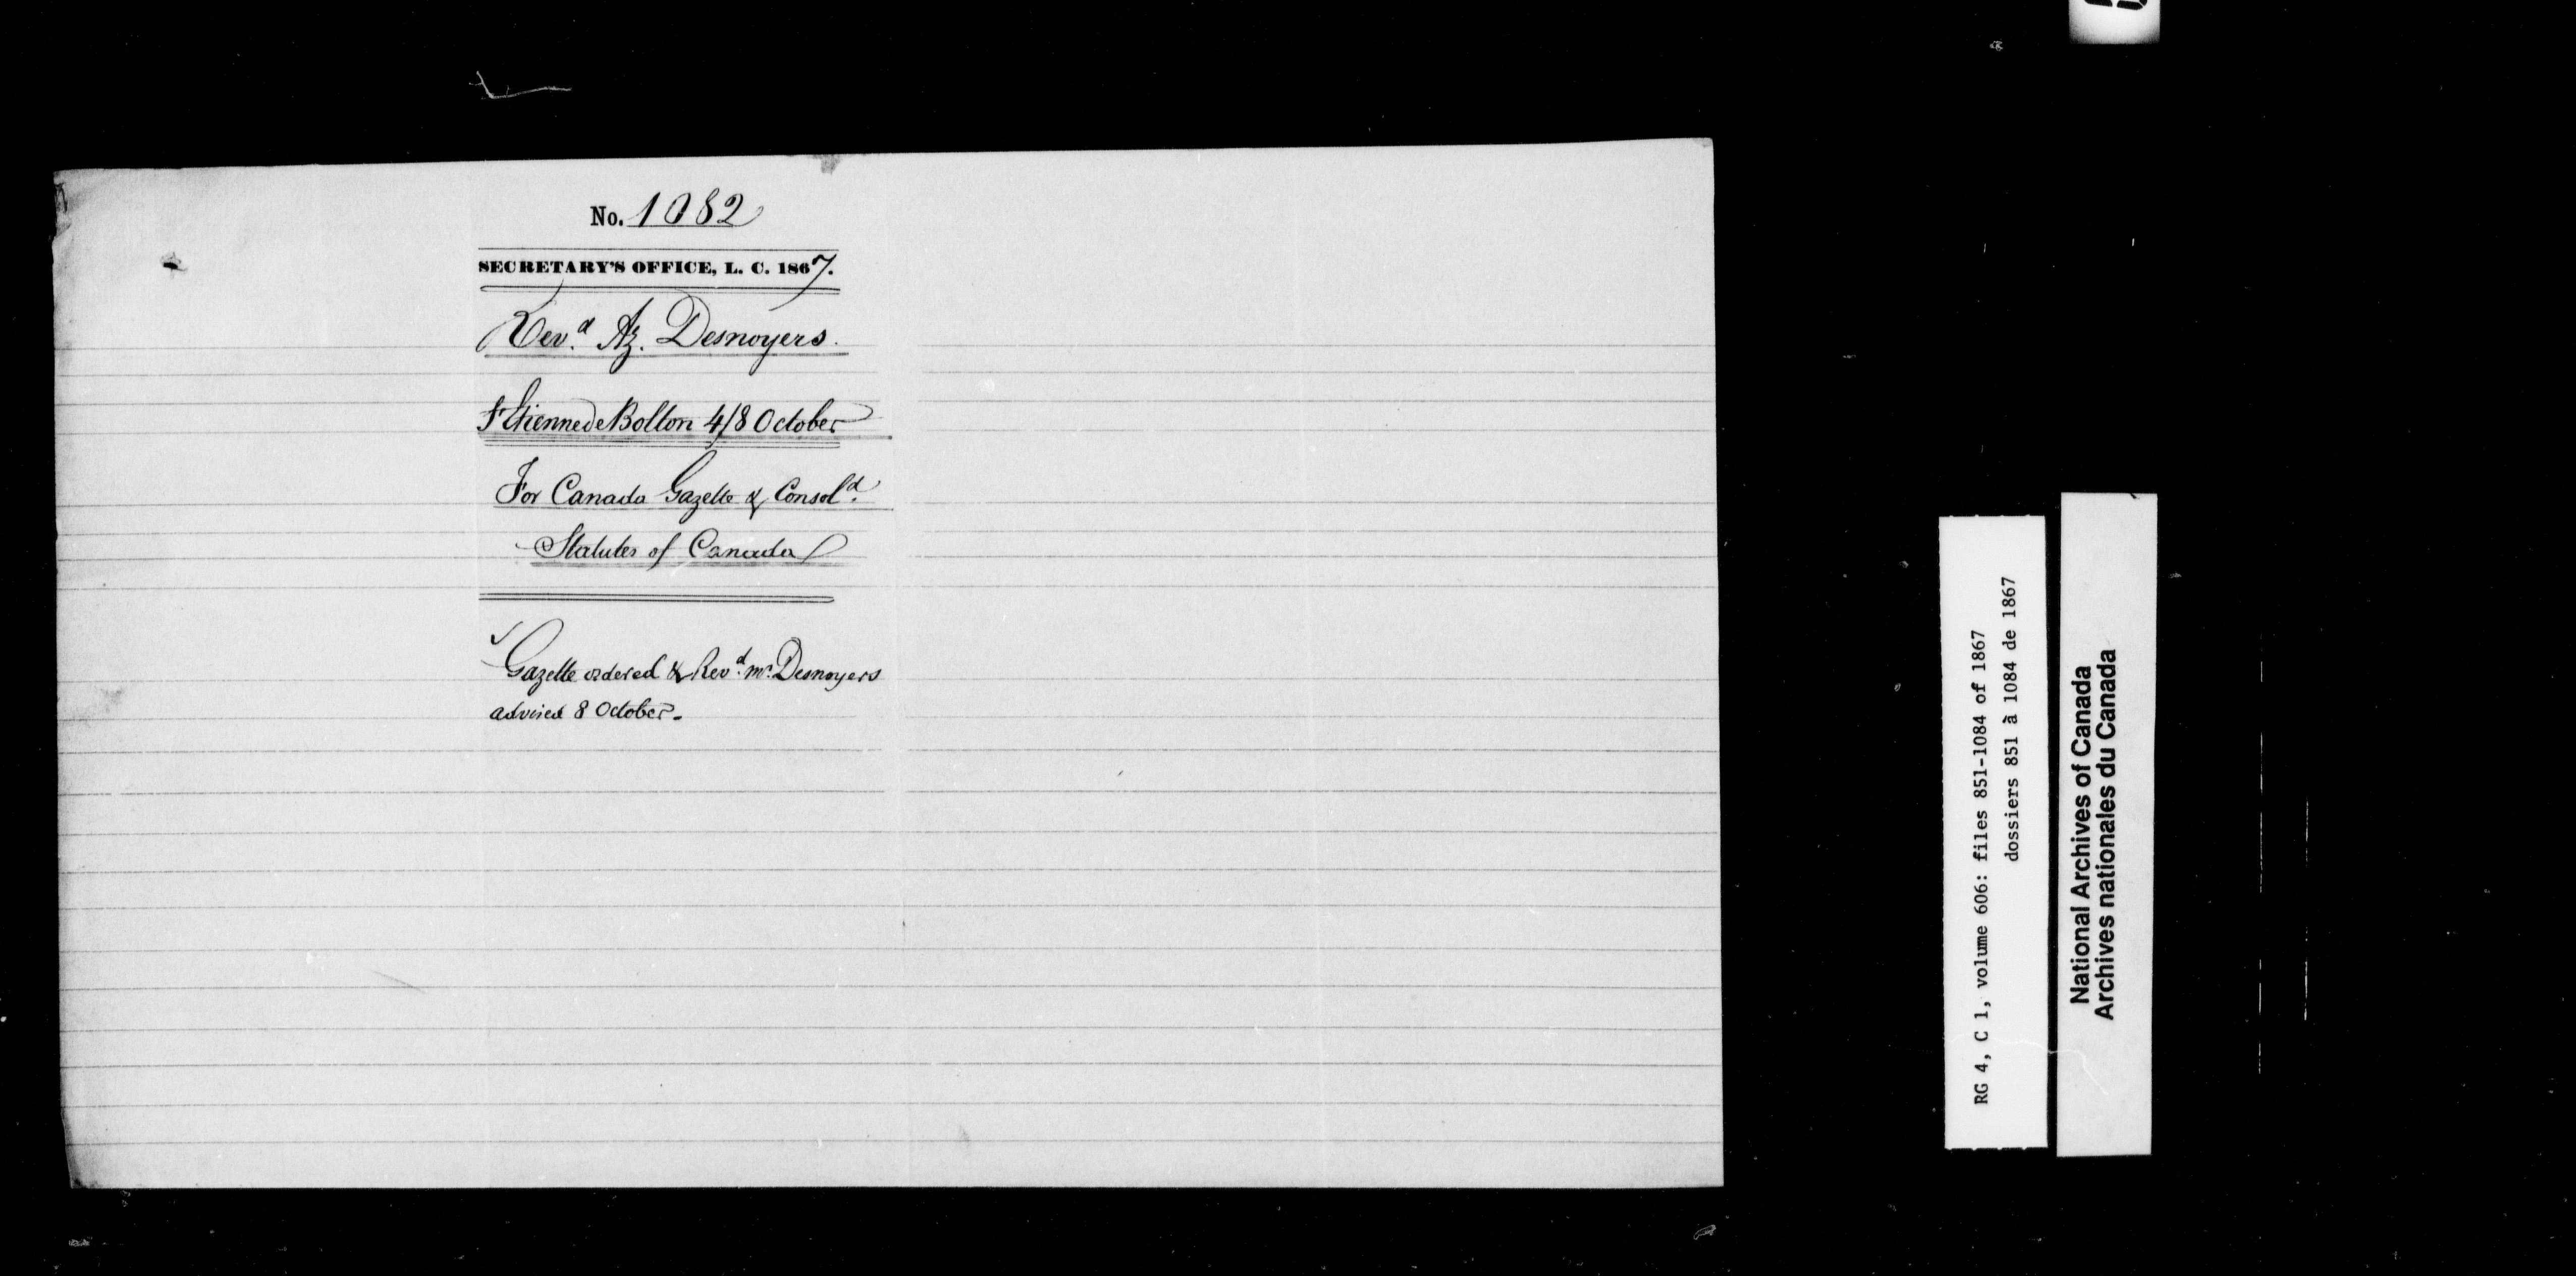 No. 1082
SECRETARY'S OFFICE, L. C. 1867.
Revd. Az. Desnoyers.
St Etienne de Bolton 4/8 October
For Canada Gazette & Consold.
Statutes of Canada
Gazette ordered & Revd. Mr. Desnoyers
advised 8 October.
RG 4, C 1, volume 606: files 851-1084 of 1867
dossiers 851 à 1084 de 1867
National Archives of Canada
Archives nationales du Canada